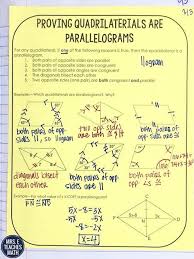 PROVING QUADRILATERIALS ARE
PARALLELOGRAMS
For any quadrilateral, if one of the following reasons is true, then the quadrilateral is a
parallelogram.
1. Both pairs of opposite sides are parallel
2. Both pairs of opposite sides are congruent
3. Both pairs of opposite angles are congruent
4. The diagonals bisect each other
5. Two opposite sides (one pair) are both congruent and parallel
llogram
Example – Which quadrilaterals are parallelograms?
both pairs of opp
sides ll, so llogram
two opp sides
are both ≅ & ll
both pairs of
opp sides are ≅
diagonals bisect
each other
both pairs of
opp sides are ll
both pairs of
opp ∠s ≅
FN ≅
5-8=3x
-5x -5x
-8=-2x
x=4